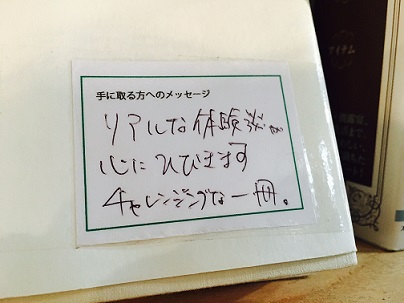 手に取る方へのメッセージ
リアルな体験談が
心にひびきます
チャレンジングな一冊。
アイテム